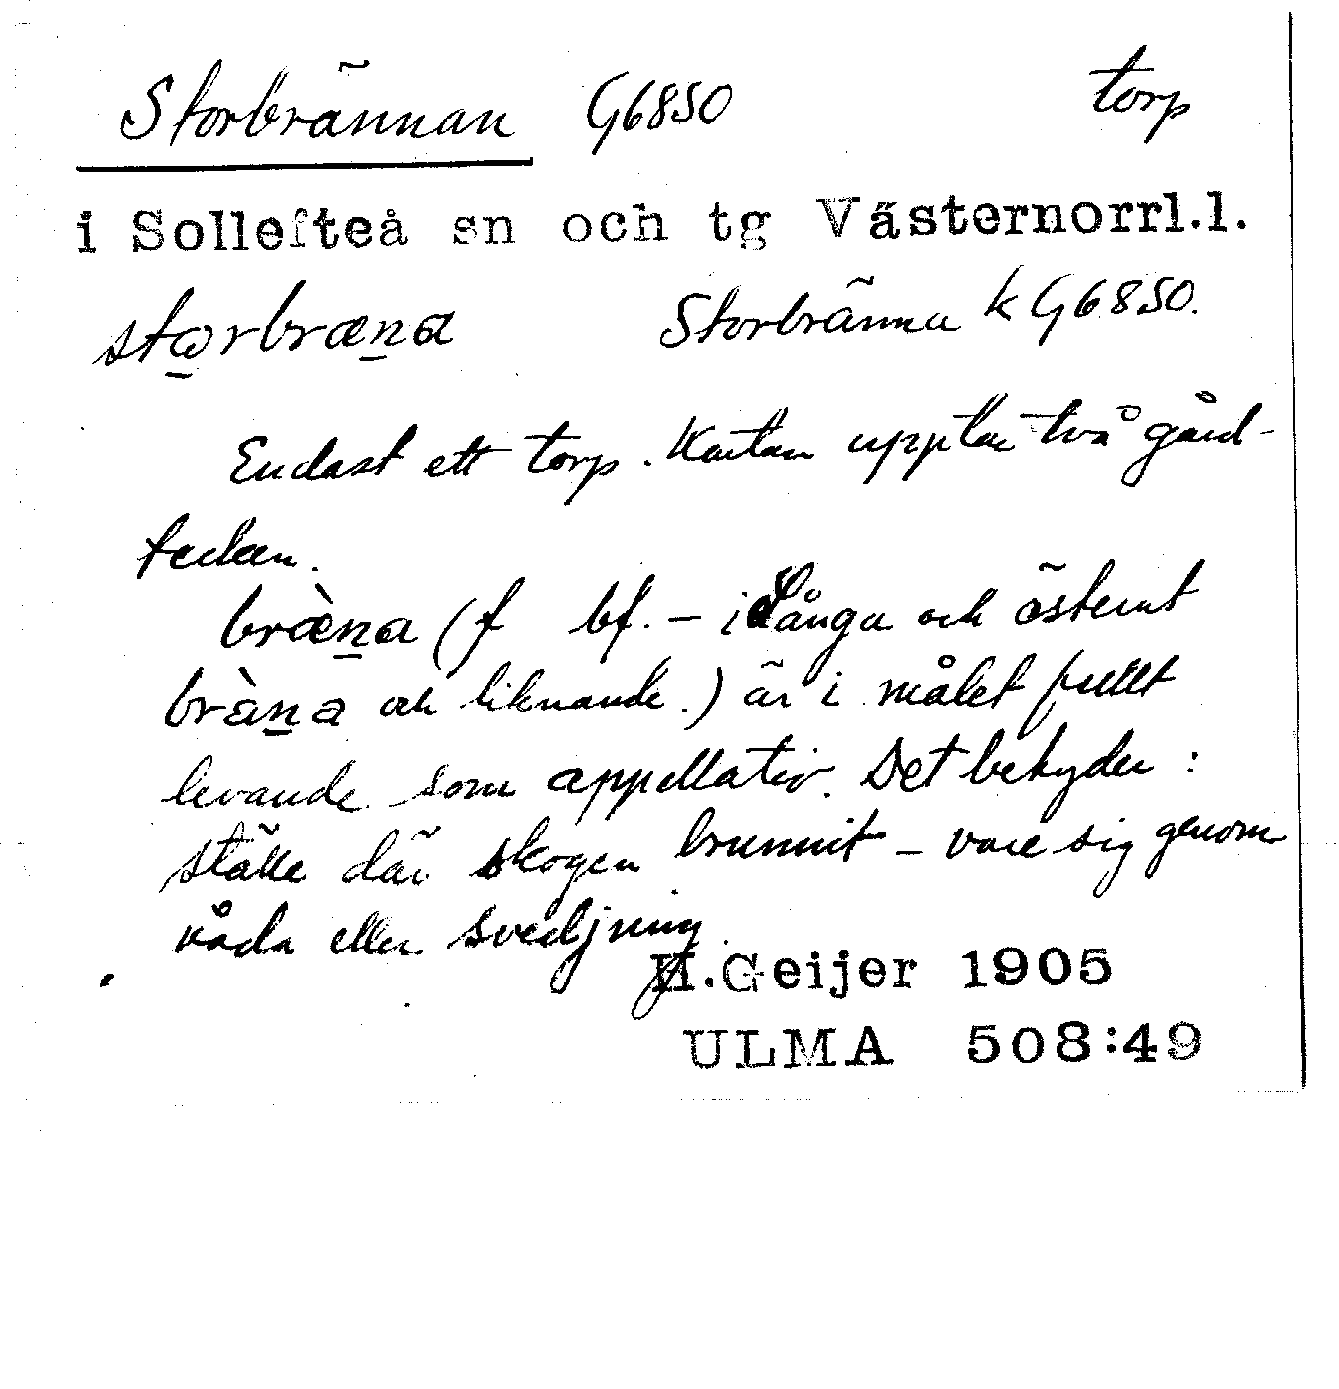 Storbrännan G6850 torp
i Sollefteå sn och tg Västernorrl.l.
storbræna Storbränna k G6850.
Endast ett torp. Kartan upptar två gård-
tecken.
bræ̀na (f bf. – i Långa och österut
bràna och liknande.) är i målet fullt
levande som appellativ. Det betyder:
ställe där skogen brunnit – vare sig genom
våda eller svedjning.
H.Geijer 1905
ULMA 508:49